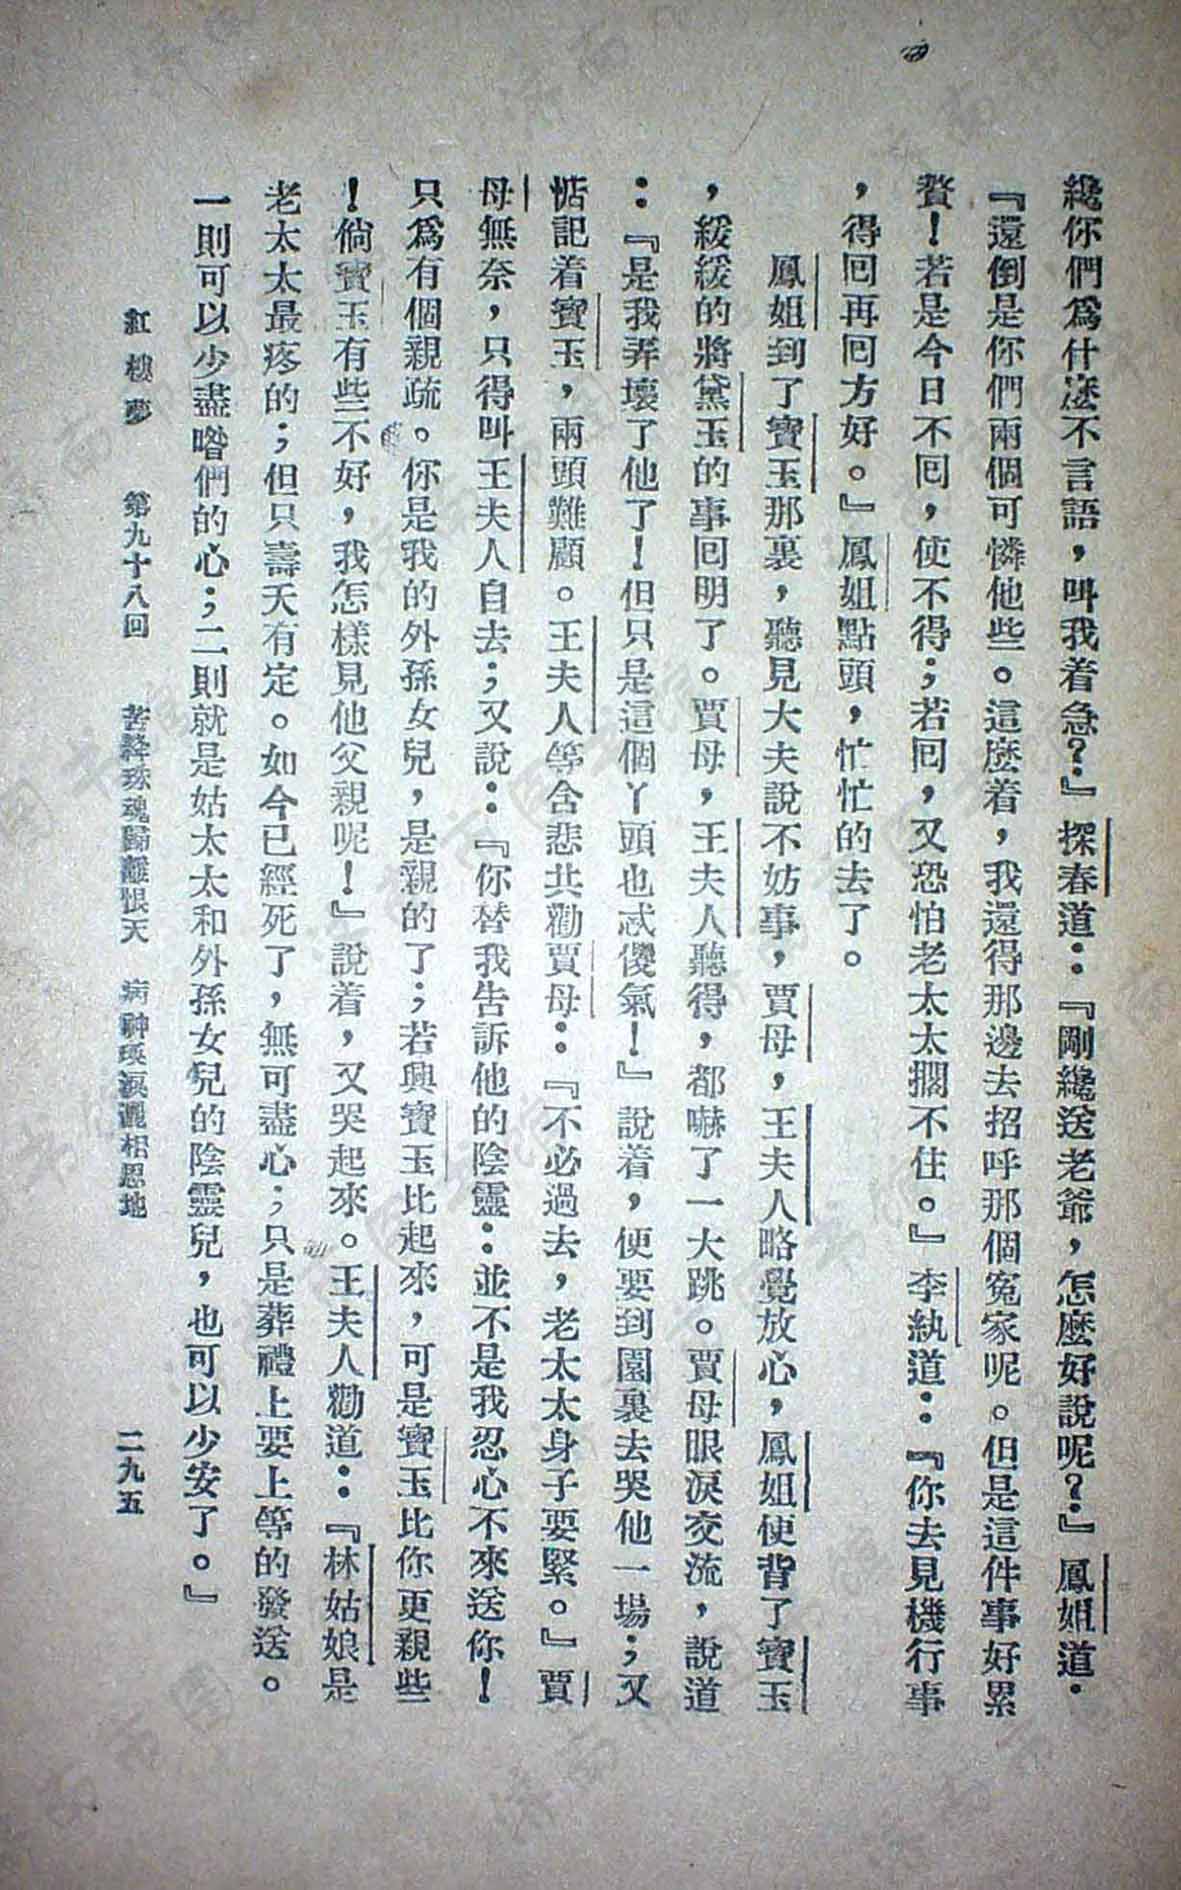 纔你們爲什麽不言語，叫我着急？』探春道：『剛纔送老爺，怎麽好說呢？』鳳姐道：
『還倒是你們兩個可憐他些。這麽着，我還得那邊去招呼那個寃家呢。但是這件事好累
贅！若是今日不囘，使不得；若囘，又恐怕老太太擱不住。』李紈道：『你去見機行事
，得囘再囘方好。』鳳姐點頭，忙忙的去了。
鳳姐到了寶玉那裏，聽見大夫說不妨事，賈母，王夫人略覺放心，鳳姐便背了寶玉
，緩緩的將黛玉的事囘明了。賈母，王夫人聽得，都嚇了一大跳。賈母眼淚交流，說道
：『是我弄壞了他了！但只是這個丫頭也忒傻氣！』說着，便要到園裏去哭他一場；又
惦記着寶玉，兩頭難顧。王夫人等含悲共勸賈母：『不必過去，老太太身子要緊。』賈
母無奈，只得叫王夫人自去；又說：『你替我告訴他的陰靈：並不是我忍心不來送你！
只爲有個親疏。你是我的外孫女兒，是親的了；若與寶玉比起來，可是寶玉比你更親些
！倘寶玉有些不好，我怎樣見他父親呢！』說着，又哭起來。王夫人勸道：『林姑娘是
老太太最疼的；但只壽夭有定。如今已經死了，無可盡心；只是葬禮上要上等的發送。
一則可以少盡喒們的心；二則就是姑太太和外孫女兒的陰靈兒，也可以少安了。』
紅樓夢 第九十八回 苦絳珠魂歸離恨天 病神瑛淚灑相思地 二九五